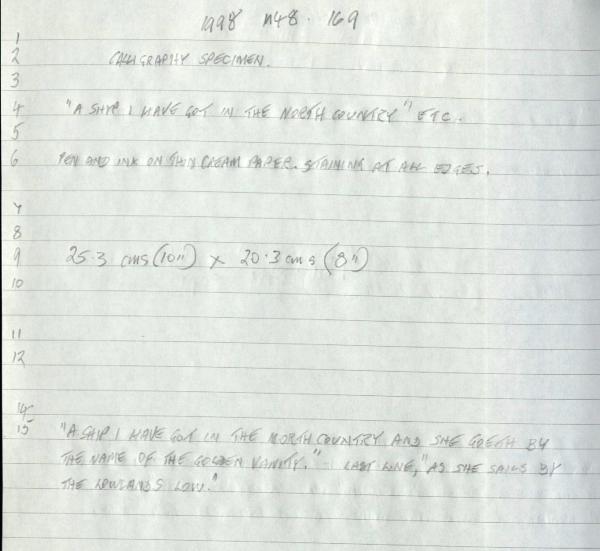 1998 M48. 169
1
2 CALLIGRAPHY SPECIMEN.
3
4 "A SHIP I HAVE GOT IN THE NORTH COUNTRY" ETC.
5
6 PEN AND INK ON THIN CREAM PAPER. STAINING AT ALL EDGES.
7
8
9 25.3 cms (10") x 20.3 cms (8")
10
11
12
14
15 "A SHIP I HAVE GOT IN THE NORTH COUNTRY AND SHE GOETH BY
THE NAME OF THE GOLDEN VANITY." LAST LINE, "AS SHE SAILS BY
THE LOWLANDS LOW."